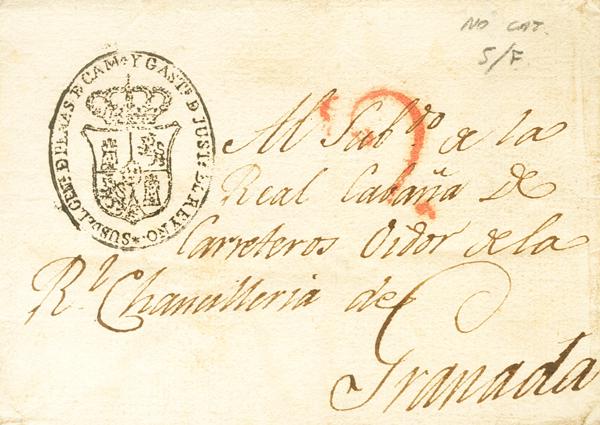 NO CAT.
S/F.
*SUBDEL GEN. D PENAS D CAM.ª Y GAST.S D JUST.ª DL REYNO.
Al Sub.do de la
Real Cabaña De
Carreteros Oidor de la
R.l Chancilleria de
Granada